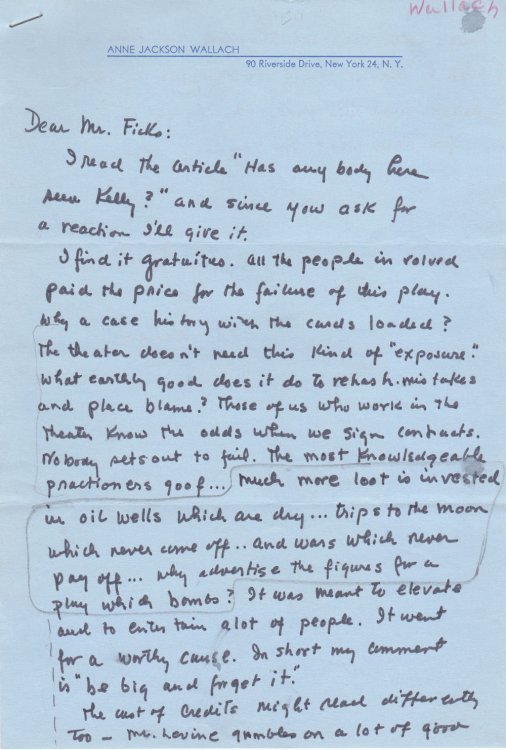 Wallach
ANNE JACKSON WALLACH
90 Riverside Drive, New York 24, N. Y.
Dear Mr. Ficks:
I read the article "Has any body here
seen Kelly?" and since you ask for
a reaction I'll give it.
I find it gratuitus. all the people in volved
paid the price for the failure of this play.
Why a case history with the cards loaded?
The theater doesn't need this kind of "exposure."
What earthly good does it do to rehash mistakes
and place blame? Those of us who work in the
theater know the odds when we sign contracts.
Nobody sets out to fail. The most knowledgeable
practioners goof... much more loot is invested
in oil wells which are dry... trips to the moon
which never come off.. and wars which never
pay off... why advertise the figures for a
play which bombs? It was meant to elevate
and to entertain a lot of people. It went
for a worthy cause. In short my comment
is "be big and forget it."
The cast of credits might read differently
too — Mr. Levine gambles on a lot of good